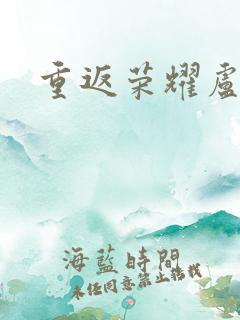 重返荣耀盧
海藍時間
未经同意禁止转载